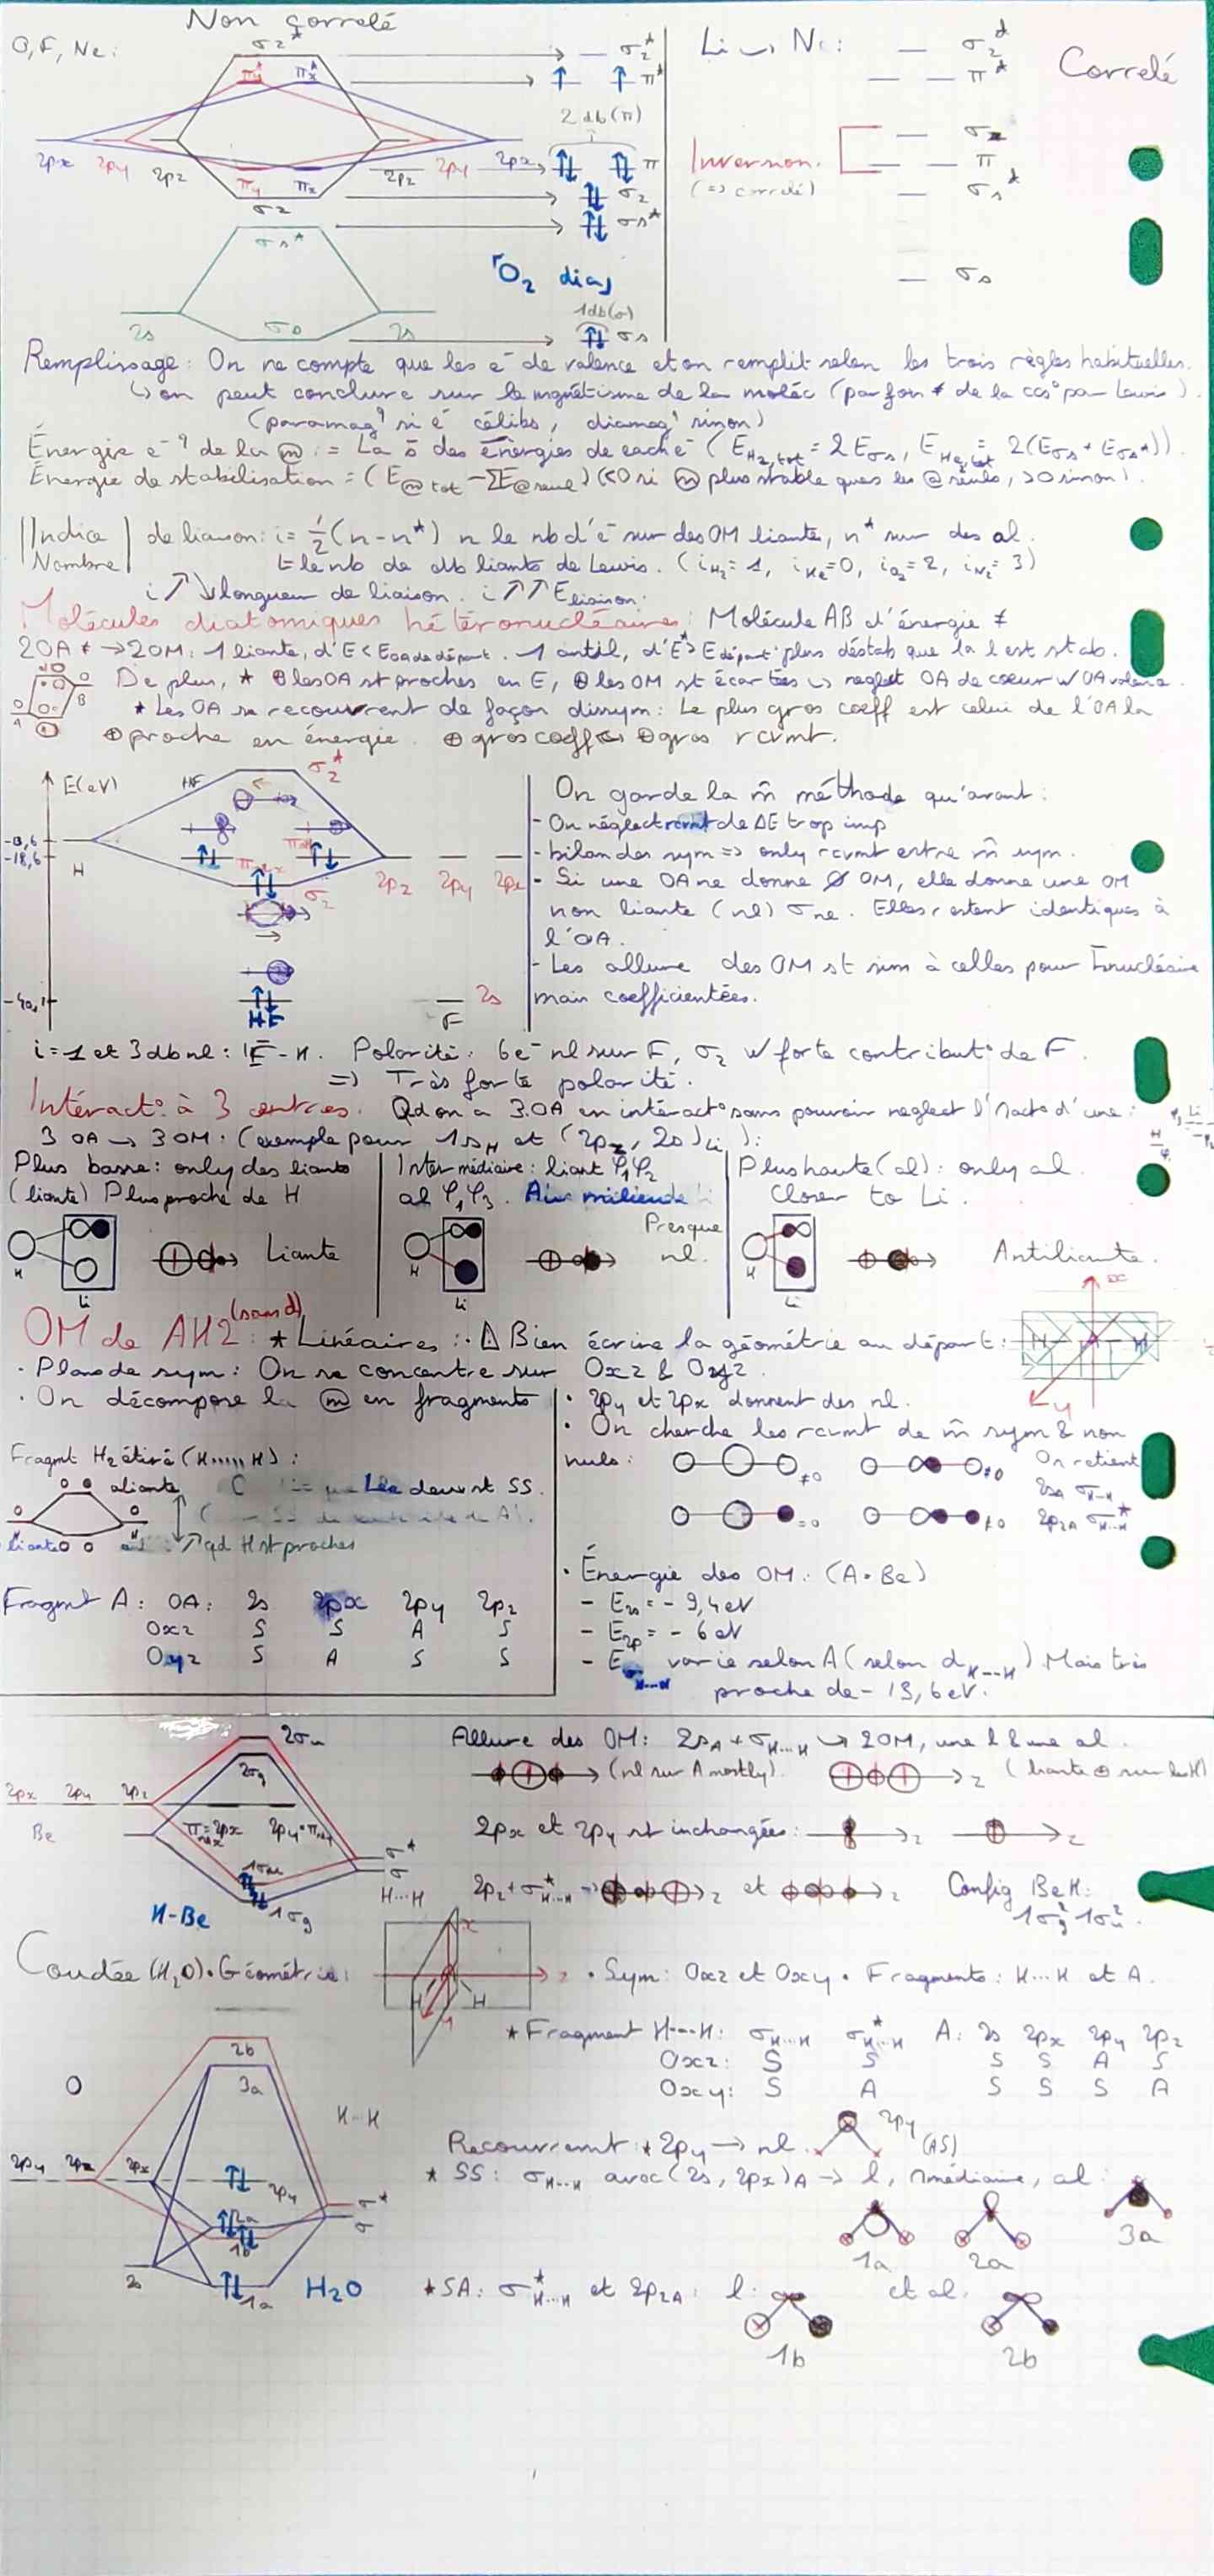 Non corrélé
O, F, Ne:
σz*
πy* πx*
2px 2py 2pz
2pz 2py 2px
πy πx
σz
σs*
2s σs 2s
σz*
π*
2 db (π)
π
σz
σs*
O2 dia
1db(σ)
σs
Li → N2:
Corrélé
σz*
π*
σz
Inversion.
(=> corrélé)
π
σs*
σs
Remplissage: On ne compte que les e- de valence et on remplit selon les trois règles habituelles.
↳ on peut conclure sur le mgnétisme de la moléc (parfois ≠ de la cc° par Lewis).
(paramag? si e- célibs, diamag? sinon)
Énergie e-? de la m := La s des énergies de each e- (E H2,tot = 2 Eσs, E He2,tot = 2(Eσs + Eσs*)).
Énergie de stabilisation = (E m tot - ΣE @ seul) (<0 si m plus stable ques les @ seuls, >0 sinon).
Indice
Nombre
de liaison: i = 1/2 (n - n*) n le nb d'e- sur des OM liante, n* sur des al.
= le nb de db liants de Lewis. (i H2 = 1, i He = 0, i O2 = 2, i N2 = 3)
i ↗ ↘ longueur de liaison. i ↗ ↗ E liaison.
Molécules diatomiques hétéronucléaires: Molécule AB d'énergie ≠
2OA ≠ → 2OM: 1 liante, d'E < E OA de départ. 1 antil, d'E* > E départ: plus déstab que la l est stab.
De plus, * ⊕ les OA st proches en E, ⊕ les OM st écartées ↳ neglect OA de coeur w OA valence
* Les OA se recouvrent de façon dissym: Le plus gros coeff est celui de l'OA la
⊕ proche en énergie. ⊕ gros coeff ↔ ⊕ gros rcvmt.
E(eV)
HF
σz*
-13,6
-18,6
H
σz
2pz 2py 2px
-40,1
HF
2s
F
On garde la m̂ méthode qu'avant:
- On néglect rcvmt de ΔE trop imp
- bilan des sym => only rcvmt entre m̂ sym.
- Si une OA ne donne Ø OM, elle donne une OM
non liante (nl) σnl. Elles restent identiques à
l'OA.
- Les allure des OM st sim à celles pour homonucléaire
mais coefficientées.
i=1 et 3 db nl: |F-H. Polarité: 6e- nl sur F, σz w forte contribut° de F.
=> Très forte polarité.
Intéract° à 3 centres. Qd on a 3 OA en intéract° sans pouvoir neglect l'nact° d'une:
3 OA → 3 OM: (exemple pour 1sH et (2pz, 2s) Li):
Plus basse: only des liants
(liante) Plus proche de H
H
Li
Liante
Intermédiaire: liant φ1φ2
al φ1φ3. Au milieu de
Presque
nl.
H
Li
Plus haute (al): only al.
Closer to Li.
H
Li
Antiliante.
OM de AH2 (sans d): * Linéaires: · ⚠ Bien écrire la géométrie au départ:
x
H A H
y
· Plans de sym: On se concentre sur Oxz & Oyz.
· On décompose la m en fragments
Fragmt H2 étiré (H.....H):
aliante
liante
↗ qd H st proches
Fragmt A: OA: 2s 2px 2py 2pz
Oxz S S A S
Oyz S A S S
· 2py et 2px donnent des nl.
· On cherche les rcvmt de m̂ sym & non
nuls:
≠0 ≠0
=0 ≠0
On retient
2sA σH-H
2pzA σH...H*
· Énergie des OM: (A=Be)
- E2s = -9,4eV
- E2p = -6 eV
- Eσ H...H varie selon A (selon d H---H). Mais très
proche de -13,6eV.
2σu
2σg
2px 2py 2pz
Be
π=2px 2py=π
1σu
σ*
σ
H...H
H-Be
1σg
Allure des OM: 2sA + σH...H → 2OM, une l & une al.
(nl sur A mostly). z (liante ⊕ sur les H)
2px et 2py st inchangées: z z
2pz + σ*H...H → z et z Config BeH:
1σg² 1σu²
Coudée (H2O) · Géométrie:
x
z
H H
y
· Sym: Oxz et Oxy · Fragments: H...H et A.
* Fragment H---H: σH...H σ*H...H A: 2s 2px 2py 2pz
Oxz: S S S S A S
Oxy: S A S S S A
2b
3a
O
H...H
2py 2pz 2px
2py
σ*
σ
2a
1b
2s
1a
H2O
Recouvrement: * 2py → nl. 2py (AS)
* SS: σH...H avec (2s, 2px)A → l, nmédiaire, al:
1a 2a 3a
* SA: σ*H...H et 2pzA: l: et al:
1b 2b